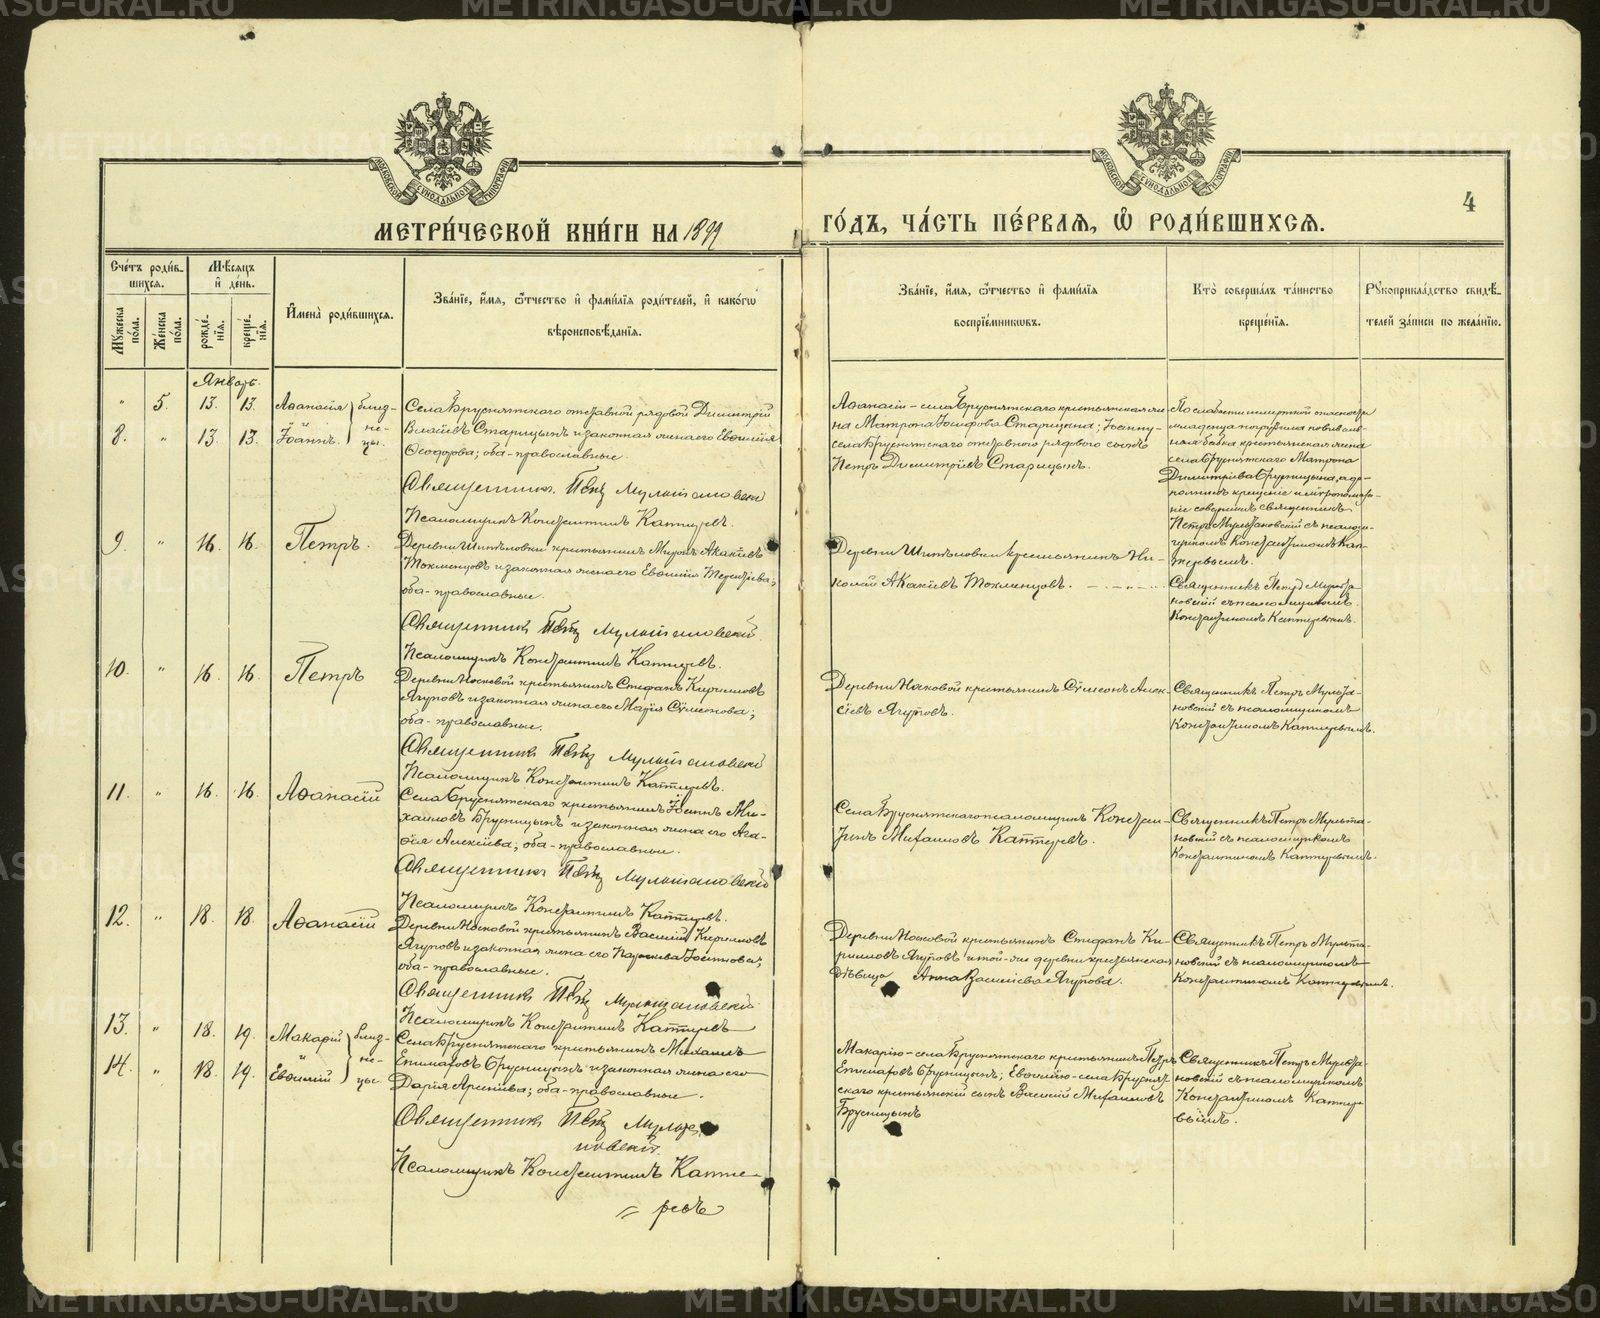 МЕТРИ́ЧЕСКОЙ КНИ́ГИ НА 1899
ГО́ДЪ, ЧА́СТЬ ПЕ́РВАѦ, Ѡ҆ РОДИ́ВШИХСѦ.
4
Сче́тъ роди́в-
шихсѧ.
Мꙋ́жеска по́ла.
Же́нска по́ла.
Мѣ́сѧцъ
и҆ де́нь.
рожде́-
нїѧ.
креще́-
нїѧ.
И҆мена̀ роди́вшихсѧ.
Зва́нїе, и҆́мѧ, ѻ҆́тчество и҆ фами́лїѧ роди́телей, и҆ како́гѡ
вѣроисповѣ́данїѧ.
Зва́нїе, и҆́мѧ, ѻ҆́тчество и҆ фами́лїѧ
воспрїе́мникѡвъ.
Кто̀ соверша́лъ та́инство
креще́нїѧ.
Рꙋкоприкла́дство свидѣ́-
телей за́писи по жела́нїю.
Январь.
" 5. 13. 13. Аѳанасія
8. " 13. 13. Іоаннъ.
близ-
не-
цы.
Села Бруснятскаго отставной рядовой Димитрій
Власіевъ Старицынъ и законная жена его Евѳимія
Ѳеодорова; оба-православные.
Священникъ Петръ Мультановскій
Псаломщикъ Константинъ Каптеревъ.
Аѳанасіи - села Бруснятскаго крестьянская же-
на Матрона Іосифова Старицына; Іоанну-
села Бруснятскаго отставного рядового сынъ
Петръ Димитріевъ Старицынъ.
По слабости и смертной опасности
младенца погрузила повиваль-
ная бабка крестьянская жена
села Бруснятскаго Матрона
Димитріева Брусницына, а до-
полнилъ крещеніе и мѵропомаза-
ніе совершилъ священникъ
Петръ Мультановскій съ псалом-
щикомъ Константиномъ Кап-
теревымъ.
9. " 16. 16. Петръ.
Деревни Шипѣловки крестьянинъ Миронъ Акакіевъ
Токменцовъ и законная жена его Евѳимія Терентіева;
оба-православные.
Священникъ Петръ Мультановскій.
Псаломщикъ Константинъ Каптеревъ.
Деревни Шипѣловки крестьянинъ Ни-
колай Акакіевъ Токменцовъ.
Священникъ Петръ Мульта-
новскій съ псаломщикомъ
Константиномъ Каптеревымъ.
10. " 16. 16. Петръ
Деревни Носковой крестьянинъ Стефанъ Кирилловъ
Ягуповъ и законная жена его Марія Сѵмеонова;
оба-православные.
Священникъ Петръ Мультановскій
Псаломщикъ Константинъ Каптеревъ.
Деревни Носковой крестьянинъ Сѵмеонъ Алек-
сѣевъ Ягуповъ.
Священникъ Петръ Мульта-
новскій съ псаломщикомъ
Константиномъ Каптеревымъ.
11. " 16. 16. Аѳанасій
Села Бруснятскаго крестьянинъ Іоаннъ Ми-
хаиловъ Брусницынъ и законная жена его Ага-
ѳія Алексіева; оба-православные.
Священникъ Петръ Мультановскій
Псаломщикъ Константинъ Каптеревъ.
Села Бруснятскаго псаломщикъ Констан-
тинъ Михаиловъ Каптеревъ.
Священникъ Петръ Мульта-
новскій съ псаломщикомъ
Константиномъ Каптеревымъ.
12. " 18. 18. Аѳанасій
Деревни Носковой крестьянинъ Василій Кирилловъ
Ягуповъ и законная жена его Параскева Іосифова;
оба-православные.
Священникъ Петръ Мультановскій
Псаломщикъ Константинъ Каптеревъ
Деревни Носковой крестьянинъ Стефанъ Ки-
рилловъ Ягуповъ и той-же деревни крестьянская
дѣвица Анна Василіева Ягупова.
Священникъ Петръ Мульта-
новскій съ псаломщикомъ
Константиномъ Каптеревымъ.
13. " 18. 19. Макарій
14. " 18. 19. Евѳимій
близ-
не-
цы.
Села Бруснятскаго крестьянинъ Михаилъ
Епимаховъ Брусницынъ и законная жена его
Дарія Арсеніева; оба-православные.
Священникъ Петръ Мульта-
новскій.
Псаломщикъ Константинъ Капте-
ревъ
Макарію-села Бруснятскаго крестьянинъ Петръ
Епимаховъ Брусницынъ; Евѳимію-села Бруснят-
скаго крестьянскій сынъ Василій Михаиловъ
Брусницынъ
Священникъ Петръ Мульта-
новскій съ псаломщикомъ
Константиномъ Каптере-
вымъ.
METRIKI.GASO-URAL.RU